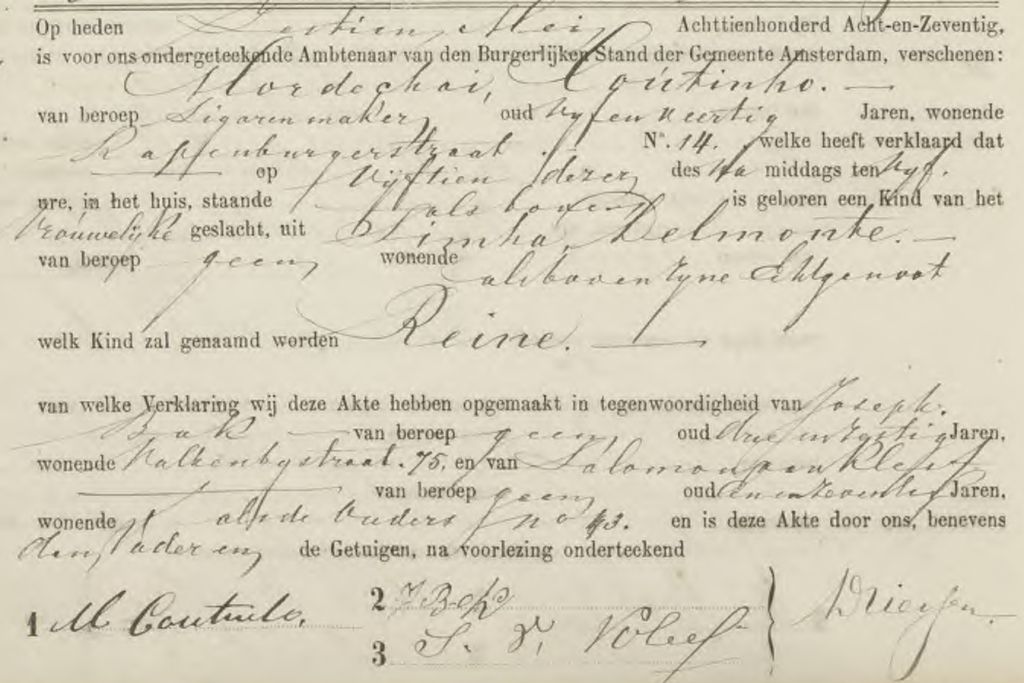 Op heden Zestien Mei Achttienhonderd Acht-en-Zeventig,
is voor ons ondergeteekende Ambtenaar van den Burgerlijken Stand der Gemeente Amsterdam, verschenen:
Mordechai, Coutinho.
van beroep Sigarenmaker, oud vyfenveertig Jaren, wonende
Rapenburgerstraat No. 14. welke heeft verklaard dat
op Vijftien dezer, des na middags ten vyf.
ure, in het huis, staande als boven is geboren een Kind van het
Vrouwelijke geslacht, uit Simha, Delmonte.
van beroep geen, wonende
als boven zyne Echtgenoot
welk Kind zal genaamd worden Reine.
van welke Verklaring wij deze Akte hebben opgemaakt in tegenwoordigheid van Joseph.
Bak van beroep geen, oud Jaren,
wonende Valkenbgstraat. 75, en van Salomon van Kleef
van beroep geen, oud een en zeventig Jaren,
wonende als de Ouders no 43. en is deze Akte door ons, benevens
den Vader en, de Getuigen, na voorlezing onderteekend
1 M Coutinho.
2 J Bak
3 S. V. Kleef